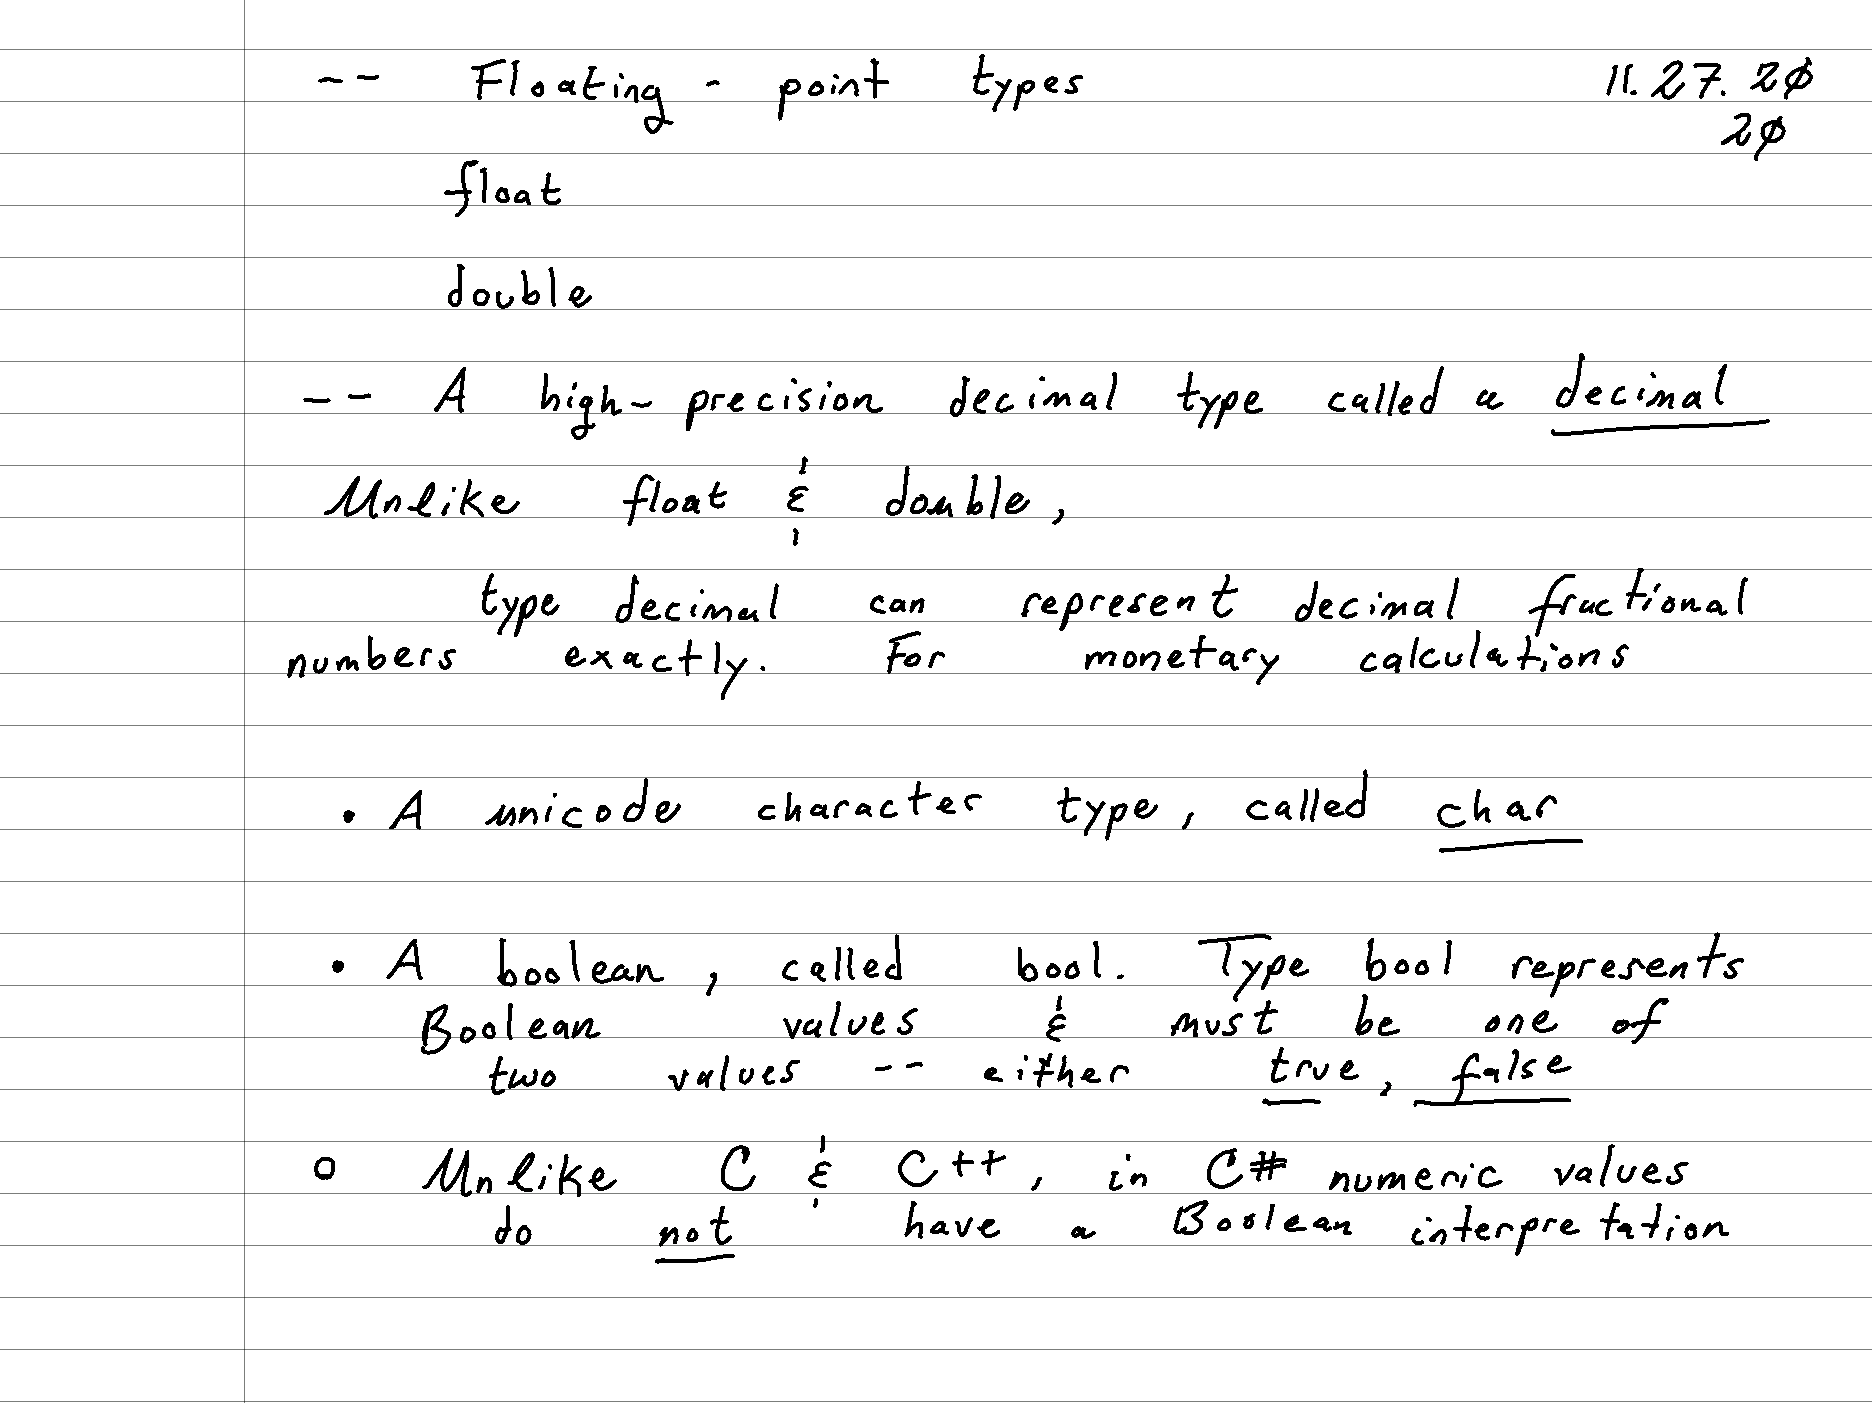 -- Floating - point types 11.27.20
20
float
double
-- A high-precision decimal type called a decimal
Unlike float & double,
type decimal can represent decimal fractional
numbers exactly. For monetary calculations
• A unicode character type, called char
• A boolean, called bool. Type bool represents
Boolean values & must be one of
two values -- either true, false
o Unlike C & C++, in C# numeric values
do not have a Boolean interpretation